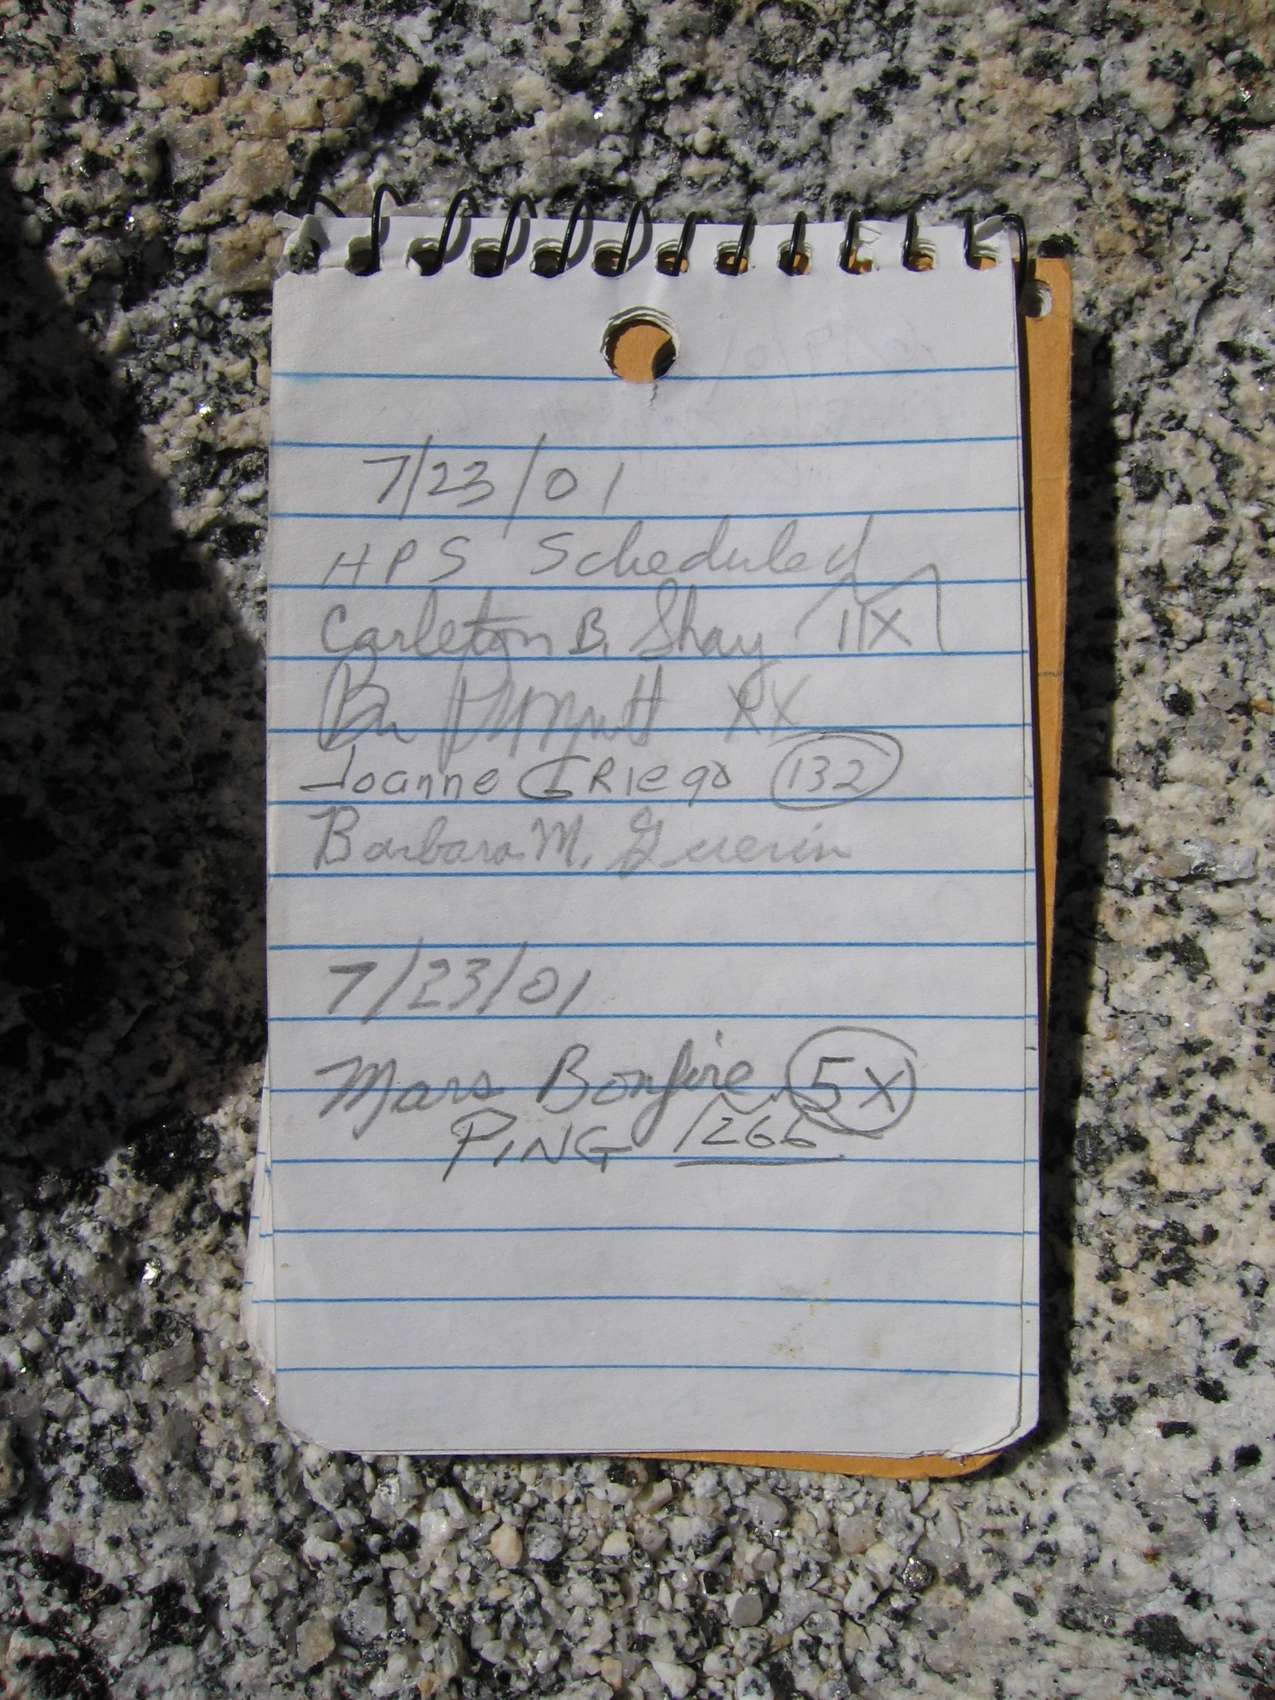 7/23/01
HPS Scheduled
Carleton B. Shay 11X
XX
Joanne GRIego 132
Barbara M. Guerin
7/23/01
Mars Bonfire 5X
PING 266